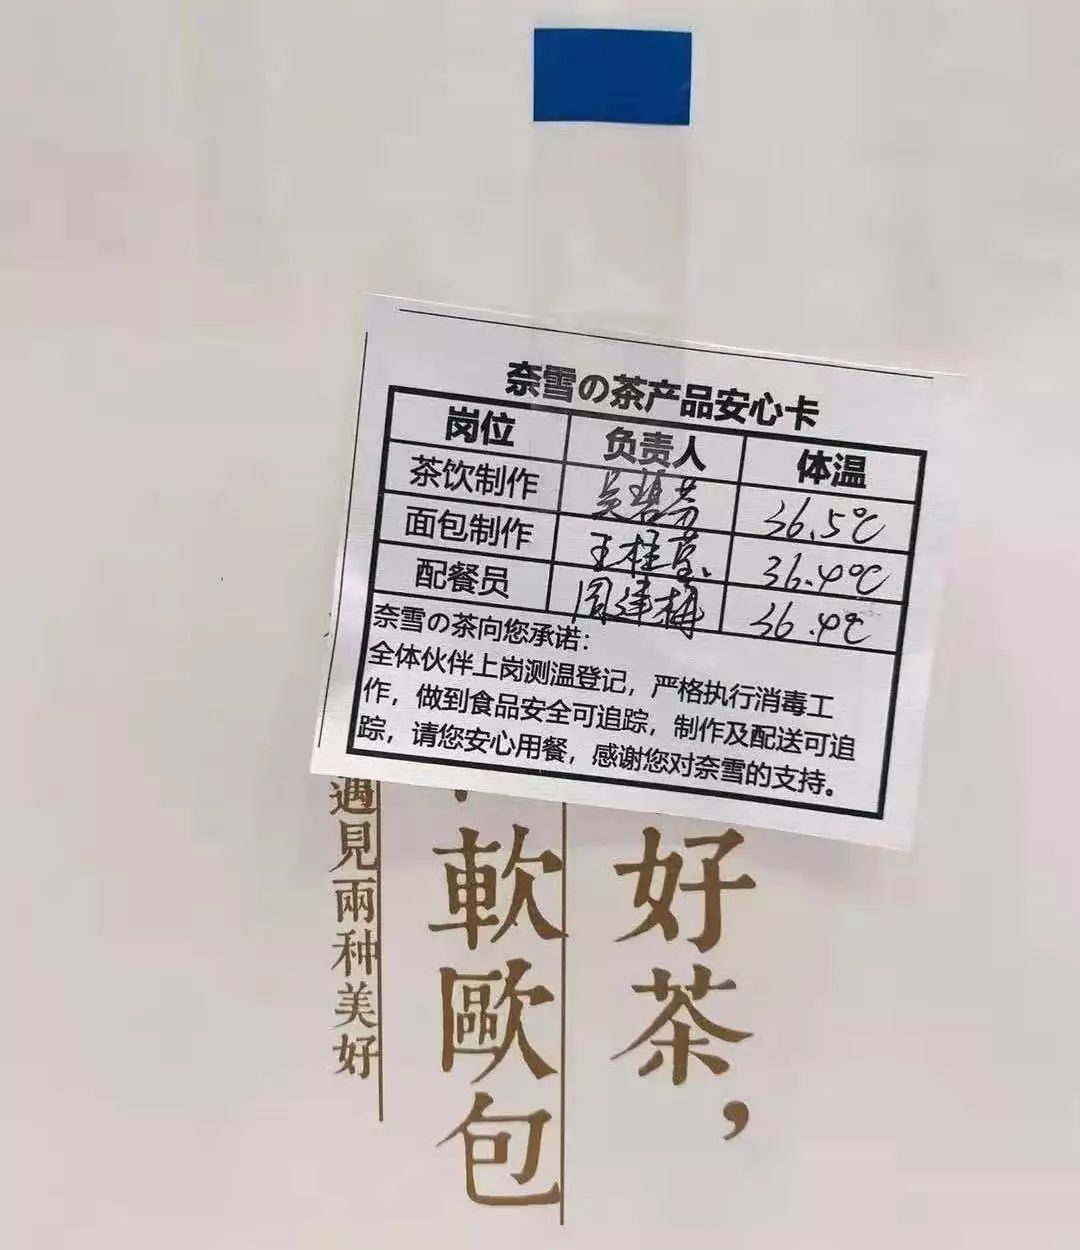 奈雪の茶产品安心卡
岗位 负责人 体温
茶饮制作 吴碧芳 36.5℃
面包制作 王桂莹 36.4℃
配餐员 周建梅 36.4℃
奈雪の茶向您承诺：
全体伙伴上岗测温登记，严格执行消毒工
作，做到食品安全可追踪，制作及配送可追
踪，请您安心用餐，感谢您对奈雪的支持。
好茶，
軟歐包
遇見兩种美好